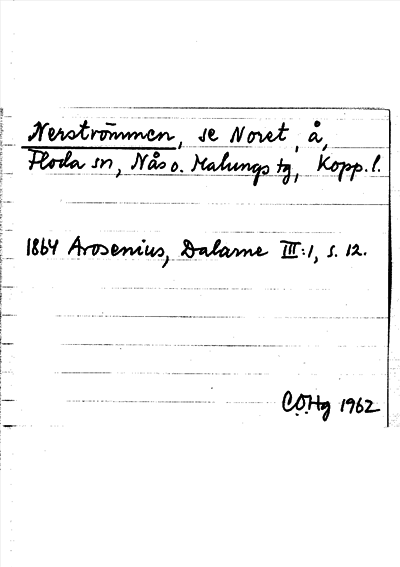 Nerströmmen, se Noret, å,
Floda sn, Nås o. Malungs tg, Kopp. l.
1864 Arosenius, Dalarne III:1, s. 12.
C.O.Hg 1962